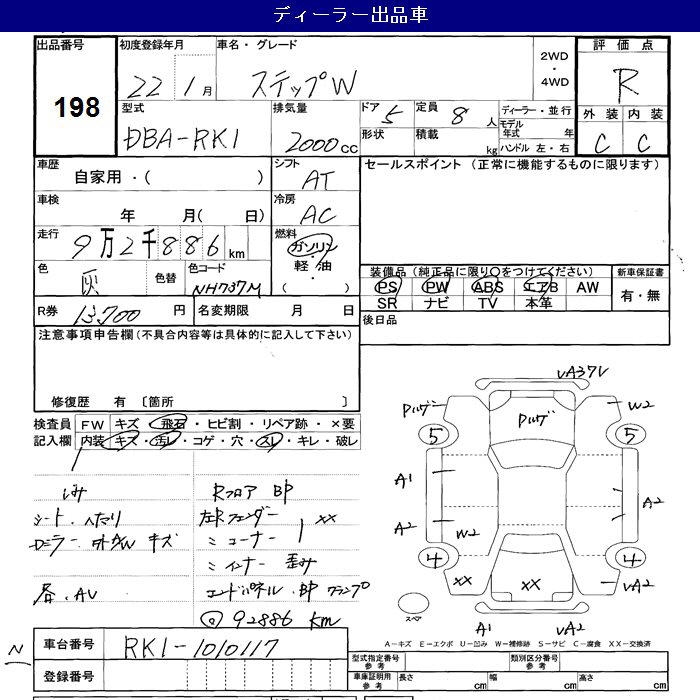 ディーラー出品車
出品番号 初度登録年月 車名・グレード 2WD・4WD 評価点
198
22 1月 ステップW R
型式 排気量 ドア 5 定員 8人 ディーラー・並行 外装 内装
DBA-RK1 2000cc 形状 積載 kg モデル年式 年 C C
ハンドル 左・右
車歴 シフト セールスポイント (正常に機能するものに限ります)
自家用・( ) AT
車検 冷房
年 月( 日) AC
走行 燃料
9万2千886km ガソリン
軽・油
色 色替 色コード ( ) 装備品 (純正品に限り○をつけてください) 新車保証書
灰 NH737M PS PW ABS エアB AW 有・無
SR ナビ TV 本革
R券 13,700円 名変期限 月 日 後日品
注意事項申告欄 (不具合内容等は具体的に記入して下さい)
修復歴 有 〔箇所 〕
検査員 FW キズ・飛石・ヒビ割・リペア跡・×要
記入欄 内装 キズ・汚レ・コゲ・穴・スレ・キレ・破レ
RフロアBP
シート・ヘタリ 左Rフェンダー XX
〃コーナー
キズ 〃インナー 歪み
エンドパネル・BP
AV
92886km
VA37L
W2
5 5
A1 A2
A2 W2
4 4
XX XX VA2
スペア A1 VA2
A-キズ E-エクボ U-凹み W-補修跡 S-サビ C-腐食 XX-交換済
N 車台番号 RK1-1010117
登録番号
型式指定番号 参考 類別区分番号 参考
車庫証明用 参考 長さ cm 幅 cm 高さ cm